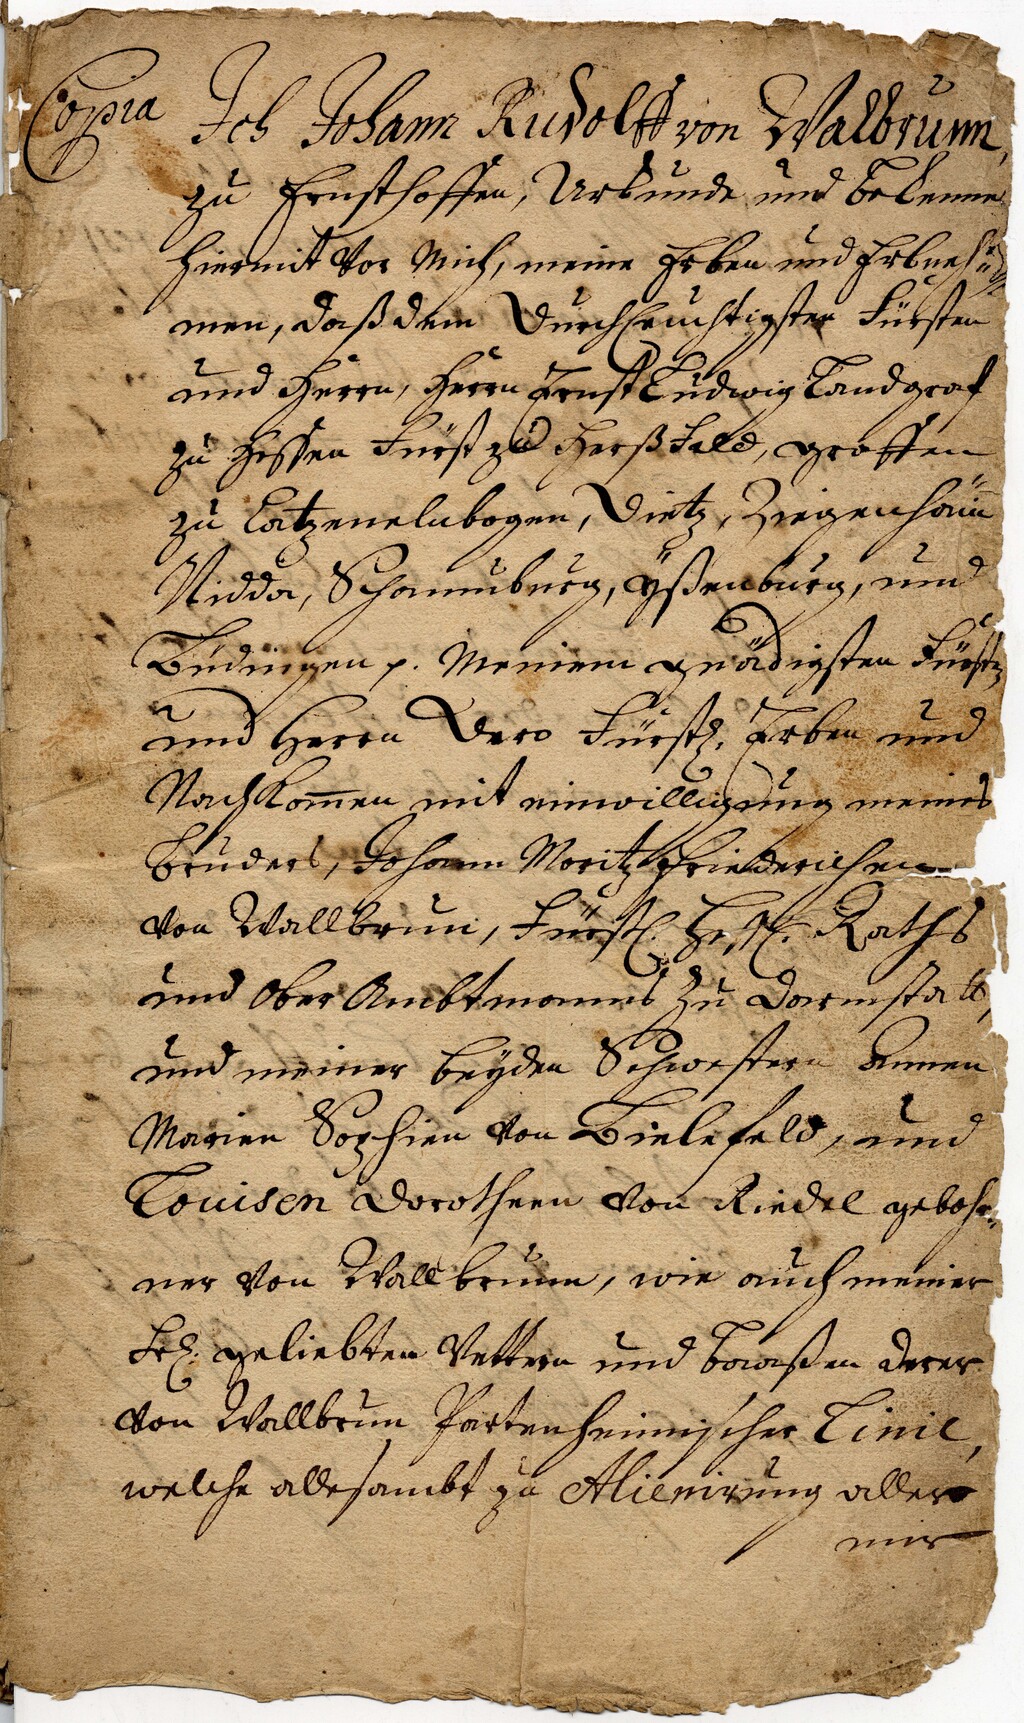 Copia Ich Johann Rudolff von Walbrunn,
zu Ernsthoffen, Urkunde und bekenne
hiermit vor Mich, meine Erben und Erbneh¬
men, daß dem Durchleuchtigsten Fürsten
und Herrn, Herrn Ernst Ludwig Landgraf
zu Hessen Fürst zu Herßfeld, graffen
zu Catzenelnbogen, Dietz, Ziegenhain
Nidda, Schaumburg, Ÿßenburg, und
Büdingen p. Meinem gnädigsten Fürst
und Herrn Dero Fürstl. Erben und
Nachkom̄en mit einwilligung meines
bruders, Johann Moritz Friederichen
von Wallbrun, Fürstl. Heßl. Raths
und Ober Ambtmanns zu Darmstatt,
und meiner beyden Schwestern Annen
Marien Sophien von Bielefeld, und
Louisen Dorotheen von Riedel gebohr¬
ner von Wallbrunn, wie auch meiner
geliebten Vettern und baaßen derer
von Wallbrun Partenheimischer Linie,
welche allesambt zu Alienirung aller
mir